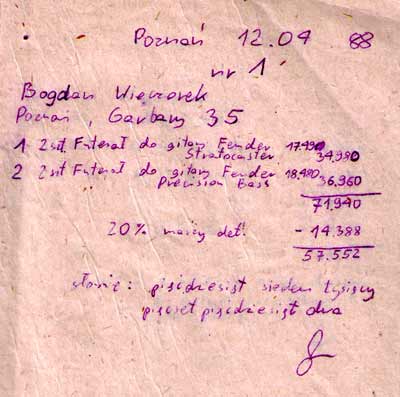 Poznań 12.04 88
nr 1
Bogdan Wieczorek
Poznań, Garbary 35
1 2 szt Futerał do gitary Fender 17.490
Stratocaster 34.980
2 2 szt Futerał do gitary Fender 18.480
Precision Bass 36.960
71.940
20% marży det. - 14.388
57.552
słownie: pięćdziesiąt siedem tysięcy
pięćset pięćdziesiąt dwa